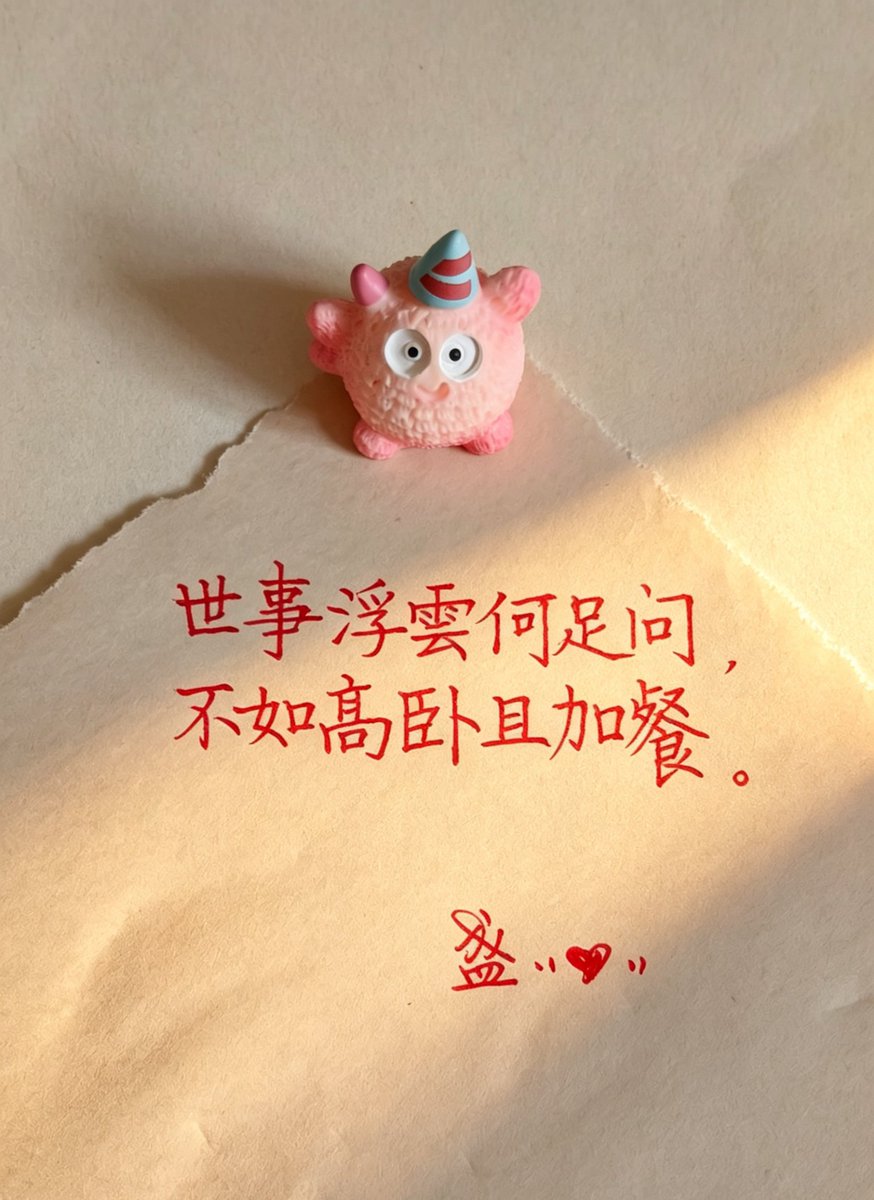 世事浮雲何足问，
不如高卧且加餐。
盈